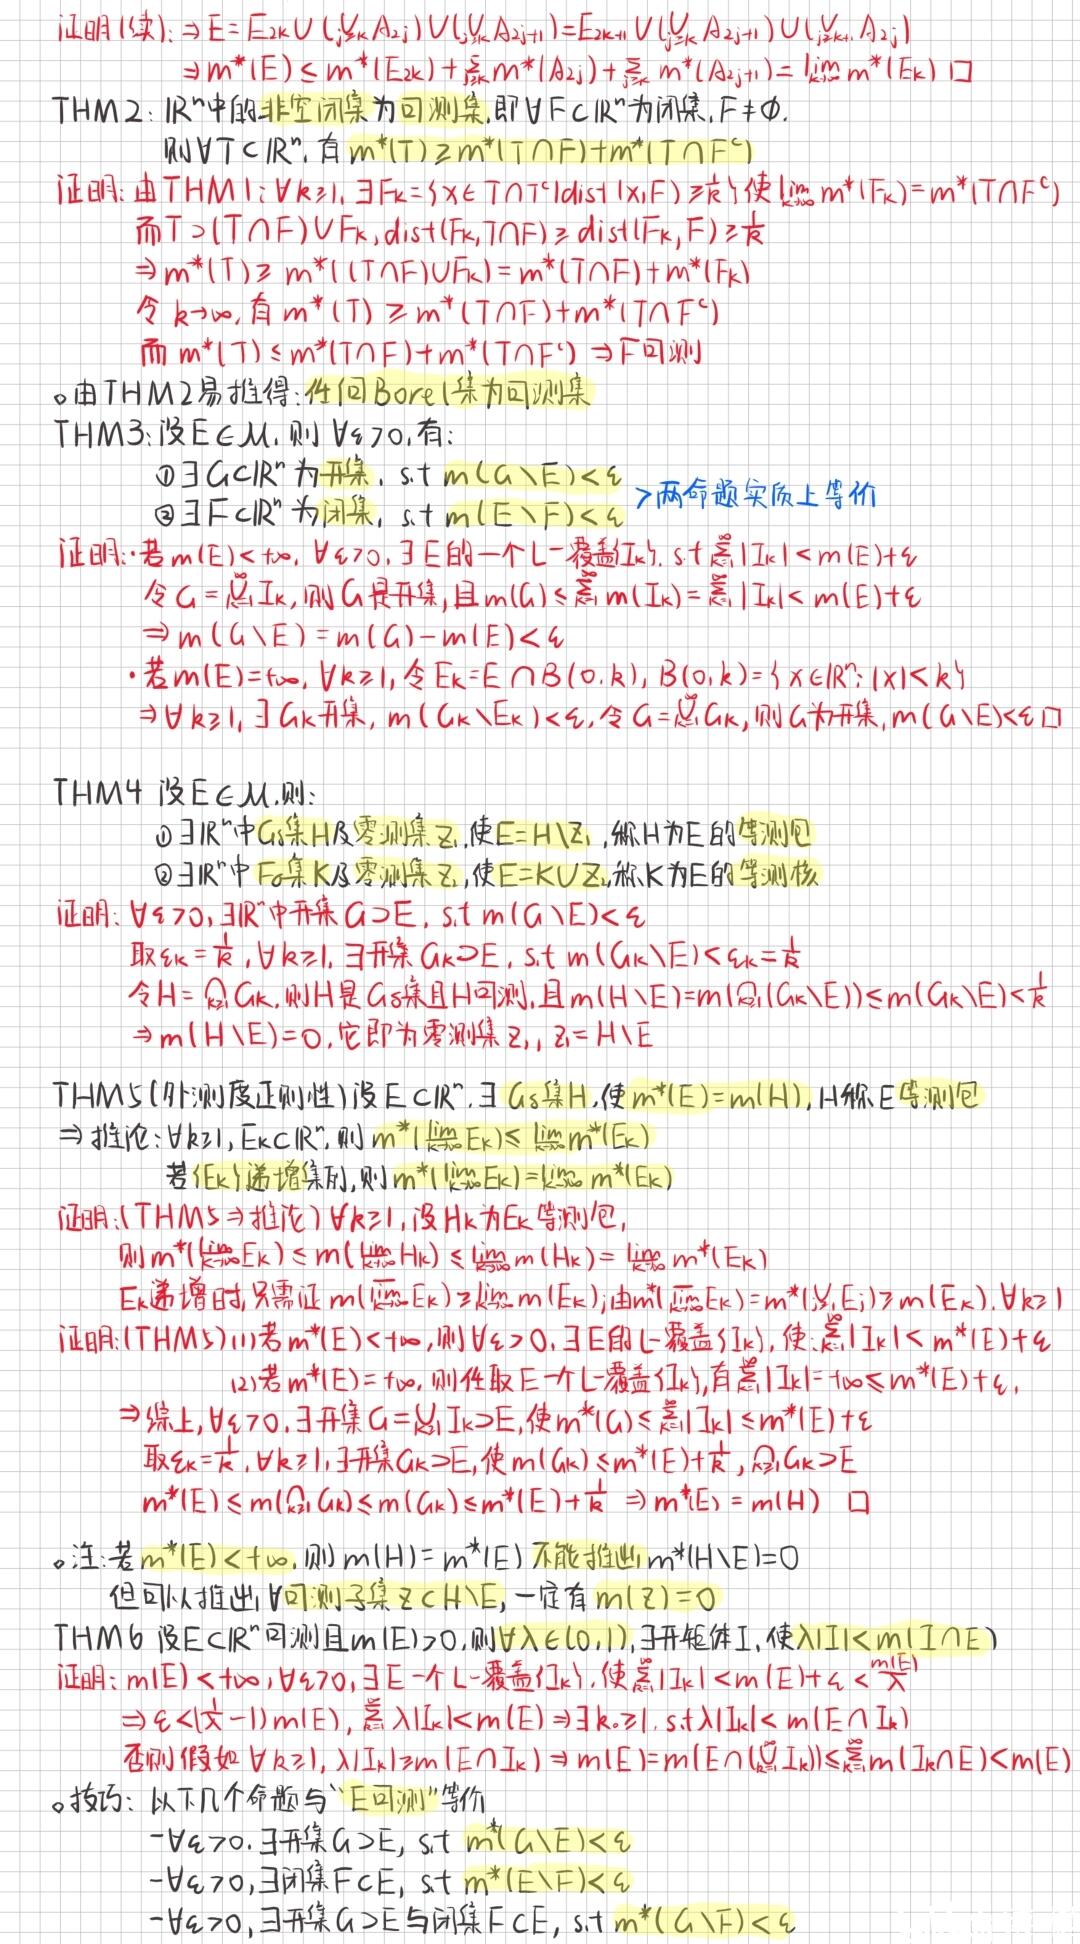 证明(续): ⇒ E = E₂ₖ∪(⋃_{j≥k} A₂ⱼ)∪(⋃_{j≥k} A₂ⱼ₊₁) = E₂ₖ₊₁∪(⋃_{j≥k} A₂ⱼ₊₁)∪(⋃_{j≥k+1} A₂ⱼ)
⇒ m*(E) ≤ m*(E₂ₖ) + ∑_{j≥k} m*(A₂ⱼ) + ∑_{j≥k} m*(A₂ⱼ₊₁) = lim_{k→∞} m*(Eₖ) □
THM2: ℝⁿ中的非空闭集为可测集,即∀F⊂ℝⁿ为闭集,F≠∅.
则∀T⊂ℝⁿ, 有 m*(T) ≥ m*(T∩F)+m*(T∩Fᶜ)
证明: 由THM1: ∀k≥1, ∃Fₖ={x∈T∩Tᶜ|dist(x,F)≥1/k}使lim_{k→∞} m*(Fₖ)=m*(T∩Fᶜ)
而T⊃(T∩F)∪Fₖ, dist(Fₖ,T∩F) ≥ dist(Fₖ,F) ≥ 1/k
⇒ m*(T) ≥ m*((T∩F)∪Fₖ) = m*(T∩F)+m*(Fₖ)
令 k→∞, 有 m*(T) ≥ m*(T∩F)+m*(T∩Fᶜ)
而 m*(T) ≤ m*(T∩F)+m*(T∩Fᶜ) ⇒ F可测
。由THM2易推得: 任何Borel集为可测集
THM3: 设E∈M, 则 ∀ε>0, 有:
① ∃G⊂ℝⁿ 为开集, s.t m(G\E)<ε
② ∃F⊂ℝⁿ 为闭集, s.t m(E\F)<ε
>两命题实质上等价
证明: ·若m(E)<+∞, ∀ε>0, ∃E的一个L-覆盖{Iₖ}, s.t ∑_{k=1}^∞|Iₖ|<m(E)+ε
令G=⋃_{k=1}^∞Iₖ, 则G是开集, 且m(G)≤∑_{k=1}^∞m(Iₖ)=∑_{k=1}^∞|Iₖ|<m(E)+ε
⇒ m(G\E)=m(G)-m(E)<ε
·若m(E)=+∞, ∀k≥1, 令Eₖ=E∩B(0,k), B(0,k)={x∈ℝⁿ: |x|<k}
⇒∀k≥1, ∃Gₖ开集, m(Gₖ\Eₖ)<ε, 令G=⋃_{k=1}^∞Gₖ, 则G为开集, m(G\E)<ε □
THM4 设E∈M,则:
① ∃ℝⁿ中Gδ集H及零测集Z₁,使E=H\Z₁,称H为E的等测包
② ∃ℝⁿ中Fσ集K及零测集Z₂,使E=K∪Z₂,称K为E的等测核
证明: ∀ε>0, ∃ℝⁿ中开集G⊃E, s.t m(G\E)<ε
取εₖ=1/k, ∀k≥1, ∃开集Gₖ⊃E, s.t m(Gₖ\E)<εₖ=1/k
令H=⋂_{k≥1}Gₖ, 则H是Gδ集且H可测, 且m(H\E)=m(⋂_{k≥1}(Gₖ\E))≤m(Gₖ\E)<1/k
⇒ m(H\E)=0, 它即为零测集Z₁, Z₁=H\E
THM5(外测度正则性)设E⊂ℝⁿ, ∃Gδ集H, 使m*(E)=m(H), H称E等测包
⇒ 推论: ∀k≥1, Eₖ⊂ℝⁿ, 则 m*(lim_{k→∞} Eₖ) ≤ lim_{k→∞} m*(Eₖ)
若{Eₖ}递增集列, 则m*(lim_{k→∞}Eₖ)=lim_{k→∞} m*(Eₖ)
证明:(THM5⇒推论) ∀k≥1, 设Hₖ为Eₖ等测包,
则m*(lim_{k→∞}Eₖ) ≤ m(lim_{k→∞}Hₖ) ≤ lim_{k→∞} m(Hₖ) = lim_{k→∞} m*(Eₖ)
Eₖ递增时,只需证 m(lim_{k→∞}Eₖ)≥lim_{k→∞} m(Eₖ); 由m*(lim_{k→∞}Eₖ)=m*(⋃_{j≥1}Eⱼ)≥m(Eₖ), ∀k≥1
证明:(THM5)(1)若m*(E)<+∞,则∀ε>0, ∃E的L-覆盖{Iₖ}, 使:∑_{k=1}^∞|Iₖ|<m*(E)+ε
(2)若m*(E)=+∞, 则任取E一个L-覆盖{Iₖ},有∑_{k=1}^∞|Iₖ|=+∞≤m*(E)+ε,
⇒综上,∀ε>0, ∃开集G=⋃_{k≥1}Iₖ⊃E,使m*(G)≤∑_{k=1}^∞|Iₖ|≤m*(E)+ε
取εₖ=1/k, ∀k≥1, ∃开集Gₖ⊃E, 使m(Gₖ)≤m*(E)+1/k, ⋂_{k≥1}Gₖ⊃E
m*(E)≤m(⋂_{k≥1}Gₖ)≤m(Gₖ)≤m*(E)+1/k ⇒ m*(E)=m(H) □
。注: 若m*(E)<+∞, 则 m(H)=m*(E) 不能推出 m*(H\E)=0
但可以推出, ∀可测子集Z⊂H\E, 一定有 m(Z)=0
THM6 设E⊂ℝⁿ可测且m(E)>0, 则∀λ∈(0,1), ∃开矩体I, 使λ|I|<m(I∩E)
证明: m(E)<+∞, ∀ε>0, ∃E一个L-覆盖{Iₖ}, 使∑_{k=1}^∞|Iₖ|<m(E)+ε<m(E)/λ
⇒ε<(1/λ-1)m(E), ∑_{k=1}^∞λ|Iₖ|<m(E) ⇒∃k₀≥1, s.t λ|Iₖ|<m(E∩Iₖ)
否则假如 ∀k≥1, λ|Iₖ|≥m(E∩Iₖ) ⇒ m(E)=m(E∩(⋃_{k=1}^∞Iₖ))≤∑_{k=1}^∞m(Iₖ∩E)<m(E)
。技巧: 以下几个命题与"E可测"等价
-∀ε>0, ∃开集G⊃E, s.t m*(G\E)<ε
-∀ε>0, ∃闭集F⊂E, s.t m*(E\F)<ε
-∀ε>0, ∃开集G⊃E与闭集F⊂E, s.t m*(G\F)<ε